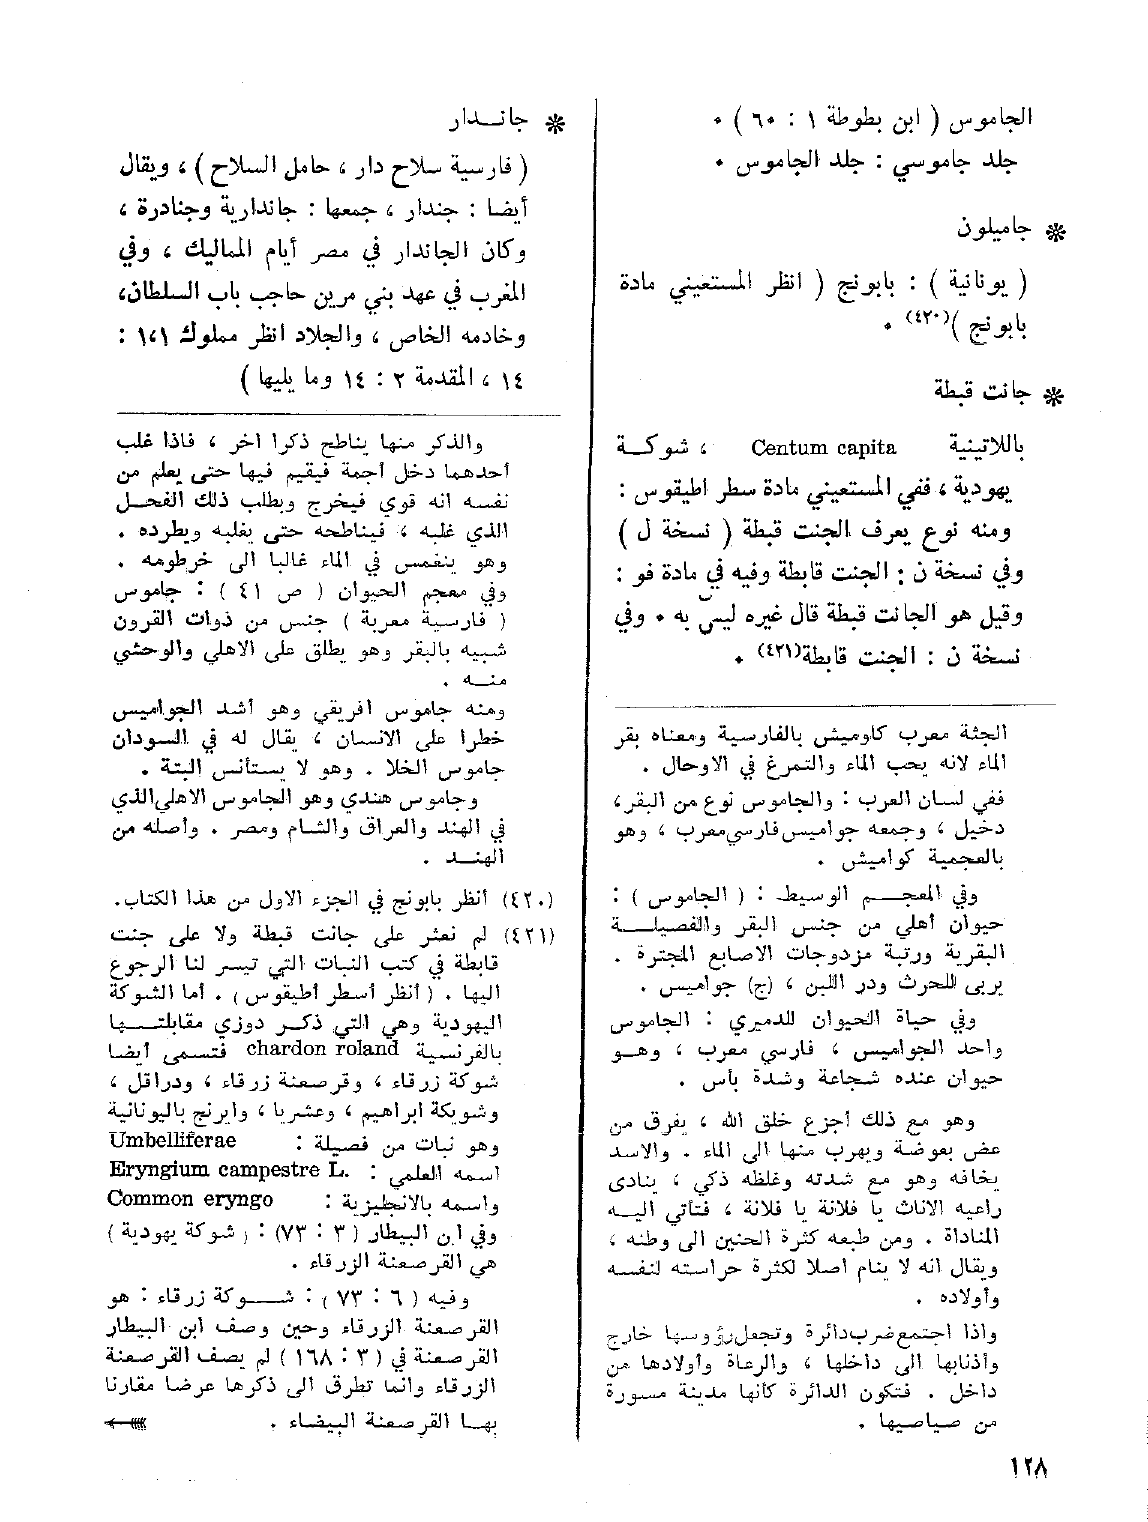 الجاموس ( ابن بطوطة ١ : ٦٠ ) .
جلد جاموسي : جلد الجاموس .
* جاميلون
( يونانية ) : بابونج ( انظر المستعيني مادة
بابونج )(٤٢٠) .
* جانت قبطة
باللاتينية Centum capita ، شوكة
يهودية ، ففي المستعيني مادة سطر اطيقوس :
ومنه نوع يعرف الجنت قبطة ( نسخة ل )
وفي نسخة ن : الجنت قابطة وفيه في مادة فو :
وقيل هو الجانت قبطة قال غيره ليس به . وفي
نسخة ن : الجنت قابطة(٤٢١) .
الجثة معرب كاوميش بالفارسية ومعناه بقر
الماء لانه يحب الماء والتمرغ في الاوحال .
ففي لسان العرب : والجاموس نوع من البقر ،
دخيل ، وجمعه جواميس فارسي معرب ، وهو
بالعجمية كواميش .
وفي المعجم الوسيط : ( الجاموس ) :
حيوان أهلي من جنس البقر والفصيلة
البقرية ورتبة مزدوجات الاصابع المجترة .
يربى للحرث ودر اللبن ، (ج) جواميس .
وفي حياة الحيوان للدميري : الجاموس
واحد الجواميس ، فارسي معرب ، وهو
حيوان عنده شجاعة وشدة بأس .
وهو مع ذلك أجزع خلق الله ، يفرق من
عض بعوضة ويهرب منها الى الماء . والاسد
يخافه وهو مع شدته وغلظه ذكي ، ينادى
راعيه الاناث يا فلانة يا فلانة ، فتأتي اليه
المناداة . ومن طبعه كثرة الحنين الى وطنه ،
ويقال انه لا ينام اصلا لكثرة حراسته لنفسه
وأولاده .
واذا اجتمع ضرب دائرة وتجعل رؤوسها خارج
وأذنابها الى داخلها ، والرعاة وأولادها من
داخل . فتكون الدائرة كأنها مدينة مسورة
من صياصيها .
* جاندار
( فارسية سلاح دار ، حامل السلاح ) ، ويقال
أيضا : جندار ، جمعها : جاندارية وجنادرة ،
وكان الجاندار في مصر أيام المماليك ، وفي
المغرب في عهد بني مرين حاجب باب السلطان،
وخادمه الخاص ، والجلاد انظر مملوك ١،١ :
١٤ ، المقدمة ٢ : ١٤ وما يليها )
والذكر منها يناطح ذكرا آخر ، فاذا غلب
أحدهما دخل أجمة فيقيم فيها حتى يعلم من
نفسه انه قوي فيخرج ويطلب ذلك الفحل
الذي غلبه ، فيناطحه حتى يغلبه ويطرده .
وهو ينغمس في الماء غالبا الى خرطومه .
وفي معجم الحيوان ( ص ٤١ ) : جاموس
( فارسية معربة ) جنس من ذوات القرون
شبيه بالبقر وهو يطلق على الاهلي والوحشي
منه .
ومنه جاموس افريقي وهو أشد الجواميس
خطرا على الانسان ، يقال له في السودان
جاموس الخلا . وهو لا يستأنس البتة .
وجاموس هندي وهو الجاموس الاهلي الذي
في الهند والعراق والشام ومصر . وأصله من
الهند .
(٤٢٠) أنظر بابونج في الجزء الاول من هذا الكتاب.
(٤٢١) لم نعثر على جانت قبطة ولا على جنت
قابطة في كتب النبات التي تيسر لنا الرجوع
اليها . ( أنظر أسطر أطيقوس ) . أما الشوكة
اليهودية وهي التي ذكر دوزي مقابلتها
بالفرنسية chardon roland فتسمى أيضا
شوكة زرقاء ، وقرصعنة زرقاء ، ودراقل ،
وشويكة ابراهيم ، وعشريا ، وايرنج باليونانية
وهو نبات من فصيلة : Umbelliferae
اسمه العلمي : Eryngium campestre L.
واسمه بالانجليزية : Common eryngo
وفي ابن البيطار ( ٣ : ٧٣) : ( شوكة يهودية )
هي القرصعنة الزرقاء .
وفيه ( ٦ : ٧٣ ) : شوكة زرقاء : هو
القرصعنة الزرقاء وحين وصف ابن البيطار
القرصعنة في ( ٣ : ١٦٨ ) لم يصف القرصعنة
الزرقاء وانما تطرق الى ذكرها عرضا مقارنا
بها القرصعنة البيضاء .
١٢٨